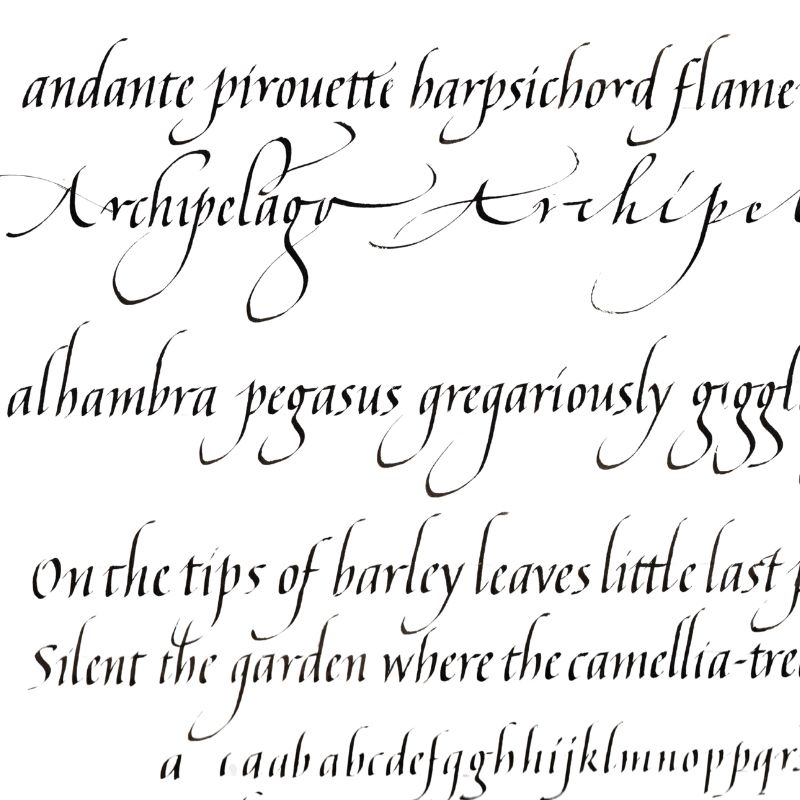 andante pirouette harpsichord flame
Archipelago Archipel
alhambra pegasus gregariously giggl
On the tips of barley leaves little last p
Silent the garden where the camellia-tree
a ı a a u b abcdefqghhijklmnoppqrs